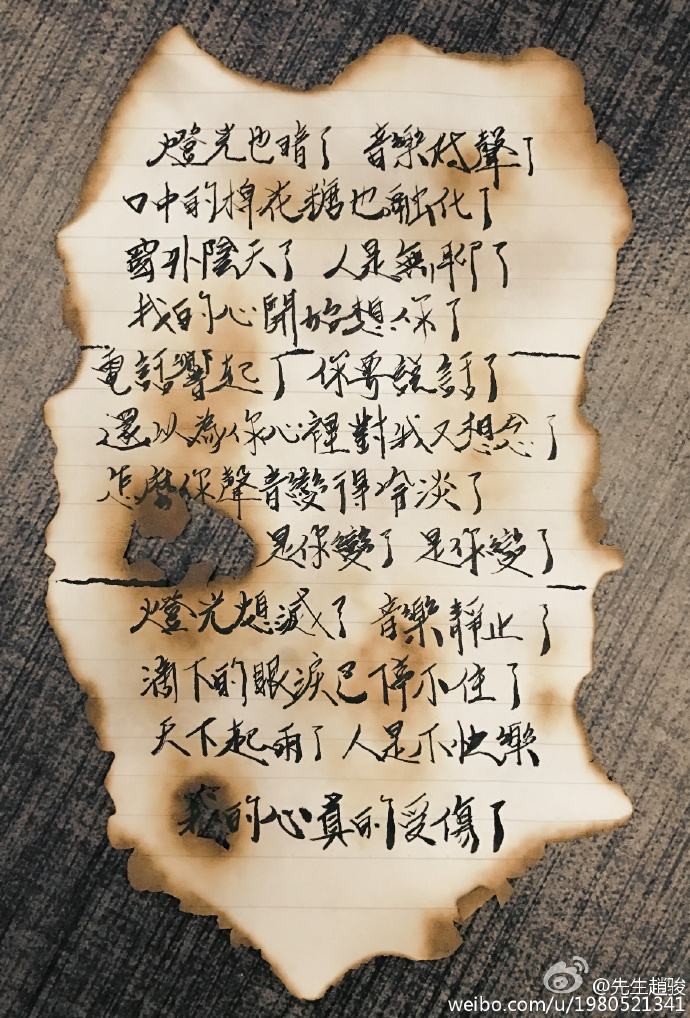 燈光也暗了 音樂低聲了
口中的棉花糖也融化了
窗外陰天了 人是無聊了
我的心開始想你了
電話響起了 你要說話了
還以為你心裡對我又想念了
怎麼你聲音變得冷淡了
是你變了 是你變了
燈光熄滅了 音樂靜止了
滴下的眼淚已停不住了
天下起雨了 人是不快樂
我的心真的受傷了
@先生趙骏
weibo.com/u/1980521341